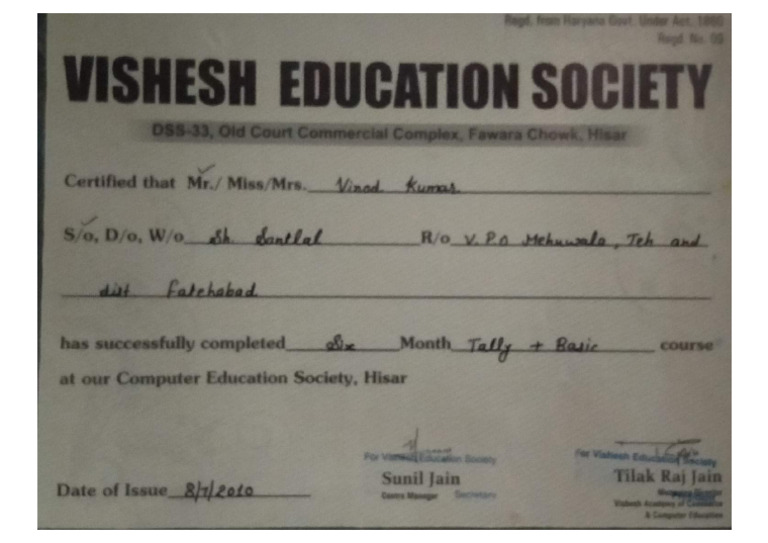 Regd. from Haryana Govt. Under Act, 1860
Regd. No. 09
VISHESH EDUCATION SOCIETY
DSS-33, Old Court Commercial Complex, Fawara Chowk, Hisar
Certified that Mr./ Miss/Mrs. Vinod Kumar
S/o, D/o, W/o Sh. Santlal R/o V.P.O Mehuwala, Teh and
dist Fatehabad
has successfully completed Six Month Tally + Basic course
at our Computer Education Society, Hisar
For Vishesh Education Society For Vishesh Education Society
Sunil Jain Tilak Raj Jain
Centre Manager Secretary
Date of Issue 8/7/2010
Vishesh Academy of Commerce
& Computer Education